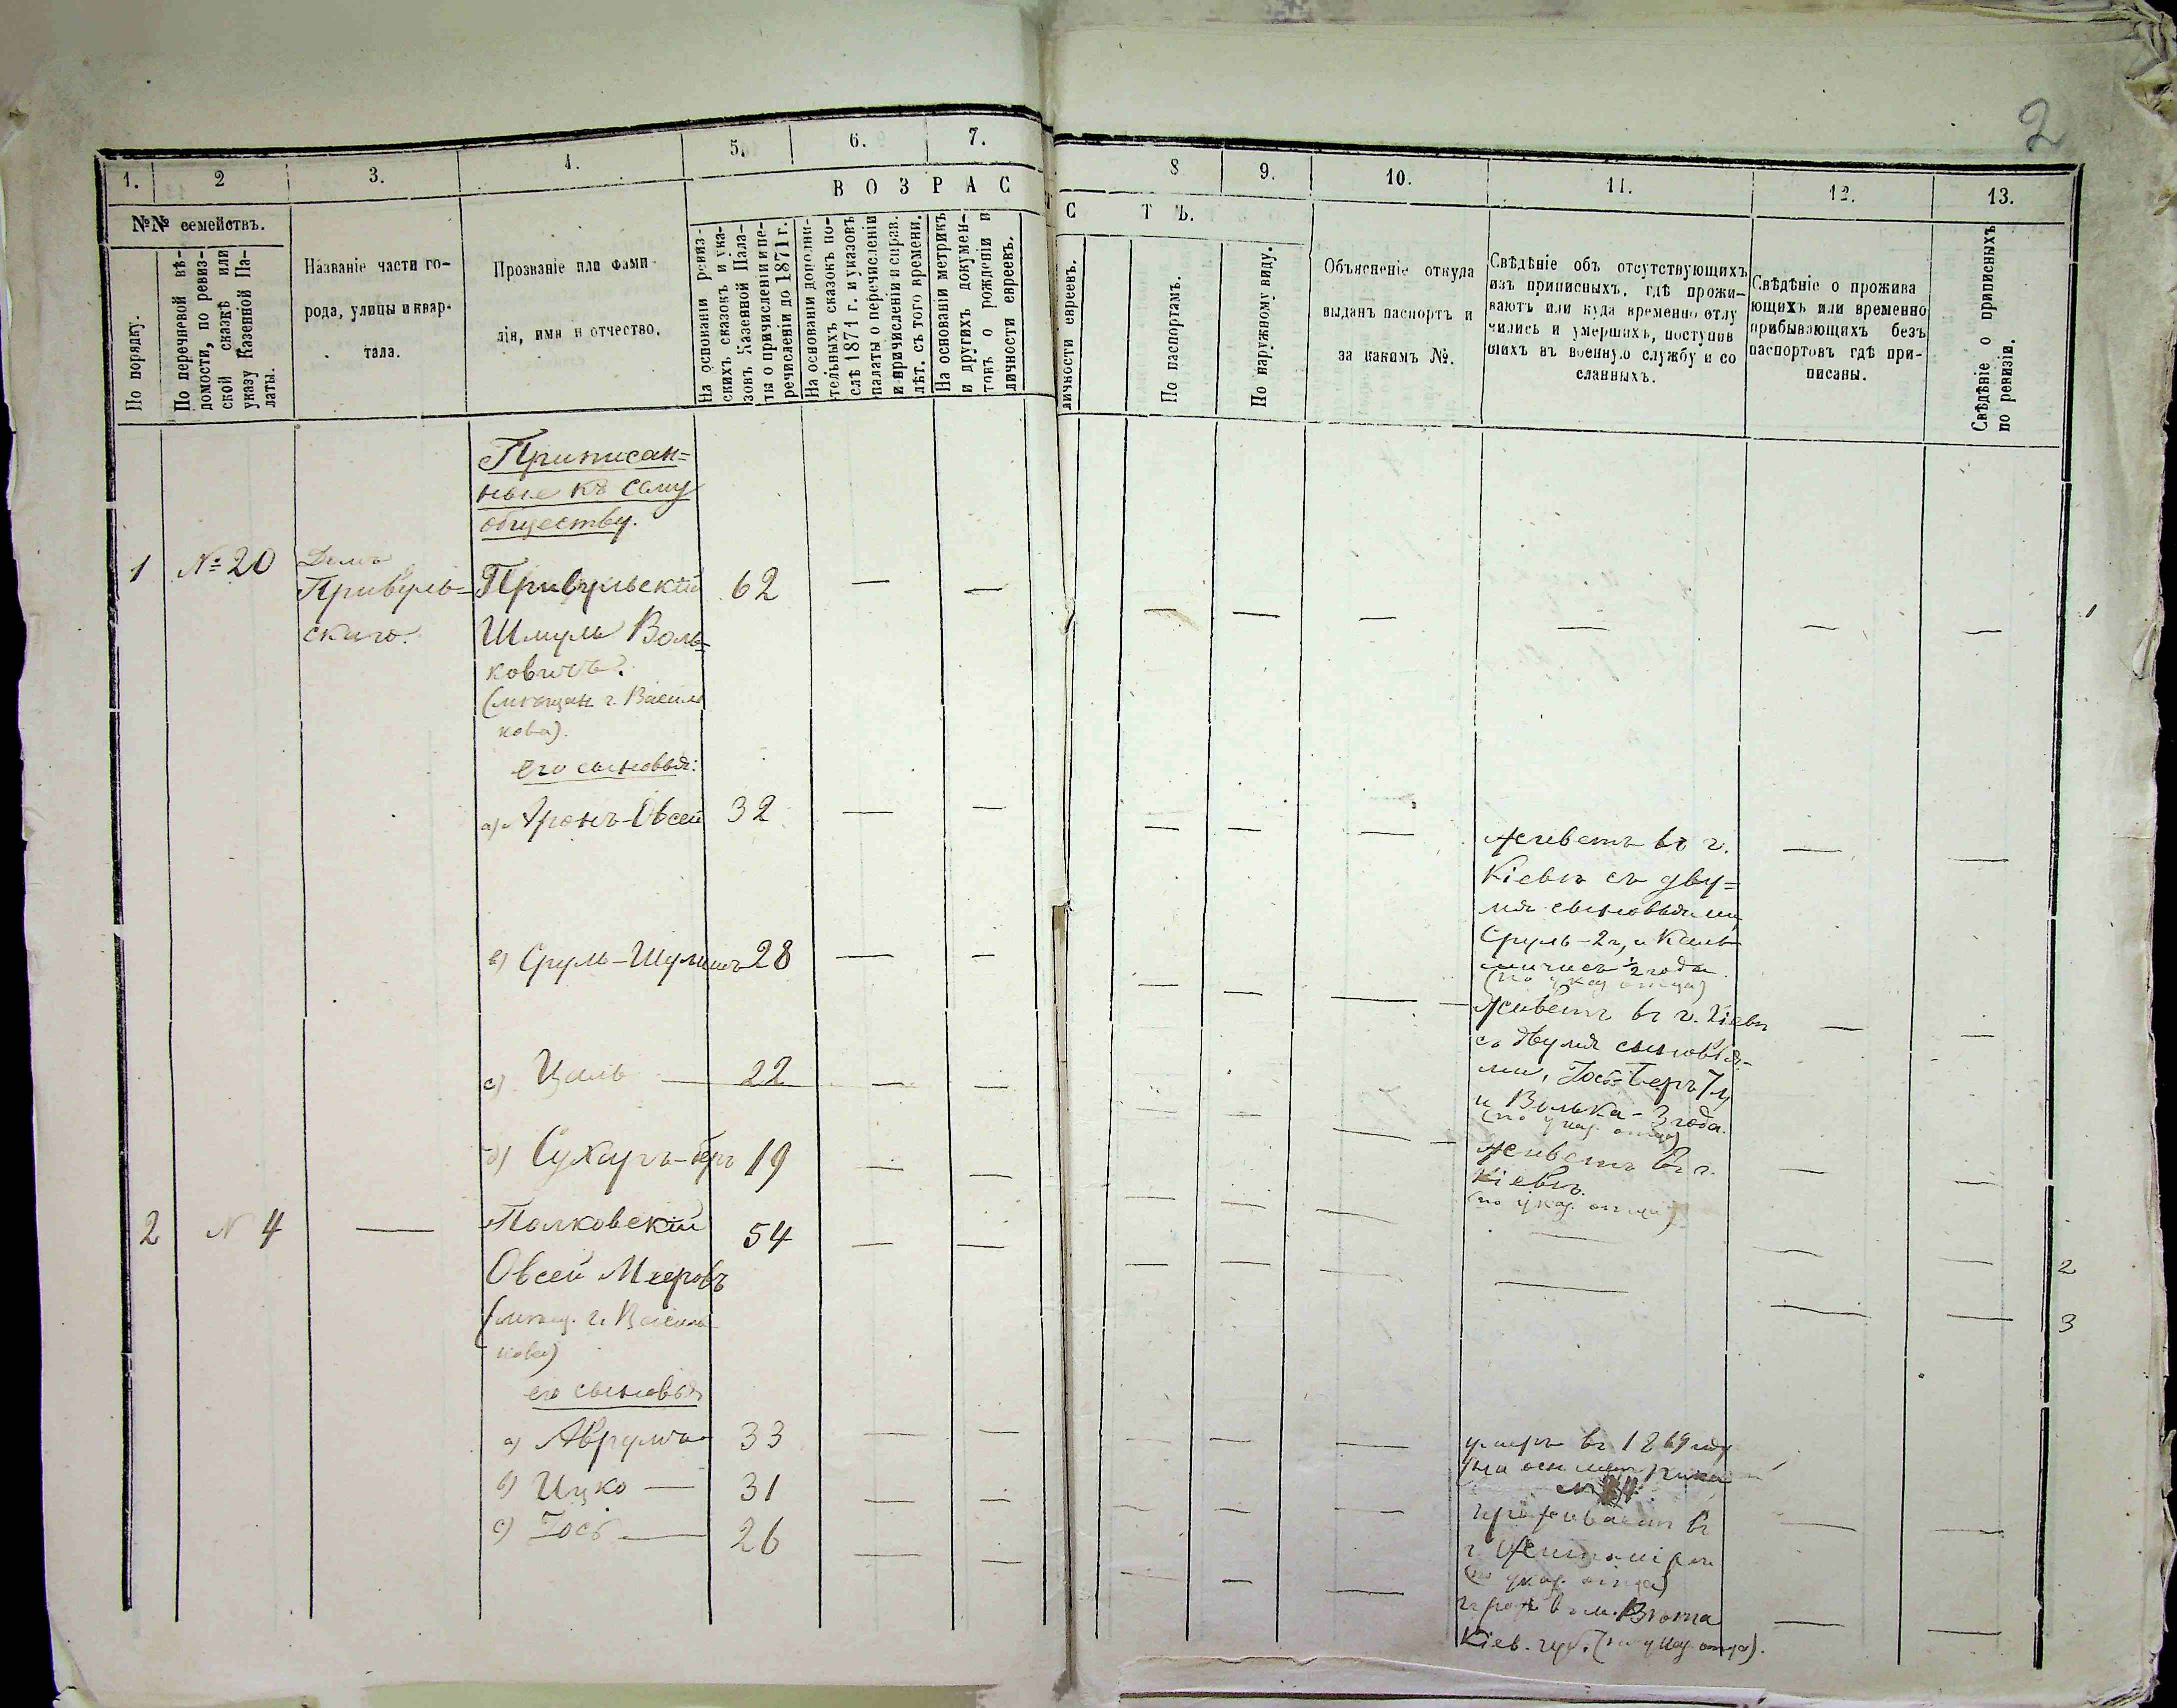 2
1.
2
3.
4.
5.
6.
7.
8
9.
10.
11.
12.
13.
ВОЗРАС
СТЪ.
№№ семействъ.
По порядку.
По перечневой вѣ-
домости, по ревиз-
ской сказкѣ или
указу Казенной Па-
латы.
Названіе части го-
рода, улицы и квар-
тала.
Прозваніе или фами-
лія, имя и отчество.
На основаніи ревиз-
скихъ сказокъ и ука-
зовъ Казенной Пала-
ты о причисленіи и пе-
речисленіи до 1871 г.
На основаніи дополни-
тельныхъ сказокъ по-
слѣ 1871 г. и указовъ
палаты о перечисленіи
и причисленіи и справ.
лѣт. съ того времени.
На основаніи метрикъ
и другихъ докумен-
товъ о рожденіи и
личности евреевъ.
личности евреевъ.
По паспортамъ.
По наружному виду.
Объясненіе откуда
выданъ паспортъ и
за какимъ №.
Свѣдѣніе объ отсутствующихъ
изъ приписныхъ, гдѣ прожи-
ваютъ или куда временно отлу
чились и умершихъ, поступив
шихъ въ военную службу и со
сланныхъ.
Свѣдѣніе о прожива
ющихъ или временно
прибывающихъ безъ
паспортовъ гдѣ при-
писаны.
Свѣдѣніе о приписныхъ
по ревизіи.
Приписан=
ные къ сему
обществу.
1 №20 Домъ
Привуль= Привульскій 62 — — — — — — — — 1
скаго. Шмуль Воль=
ковичъ.
(мѣщан. г. Василь
кова).
его сыновья:
а) Аронъ-Овсей 32 — — — — — живетъ въ г. — —
Кіевѣ съ дву=
мя сыновьями
Сруль-2 г., и
½ года
(по указ. отца)
в) Срул-Шулимъ 28 — — — — — живетъ въ г. Кіевѣ — —
съ двумя сыновья-
ми, Іось-Беръ 7 л.
и Волька-3 года.
(по указ. отца)
с) Цаль — 22 — — — — — живетъ въ г. — —
Кіевѣ.
(по указ. отца)
д) Сухаръ-беръ 19 — — — — — — — — 2
2 № 4 — Полковскій 54 — — — — — — — — 3
Овсей Мееровъ
(мѣщ. г. Василь
кова)
его сыновья
а) Аврумъ 33 — — — — — умеръ въ 1869 году
(на осн. метрики
б) Ицко — 31 — — — — — проживаетъ въ — —
г. Житомірѣ
(по указ. отца)
с) Іось — 26 — — — — — прож. въ м.
Кіев. губ. (по указ. отца).